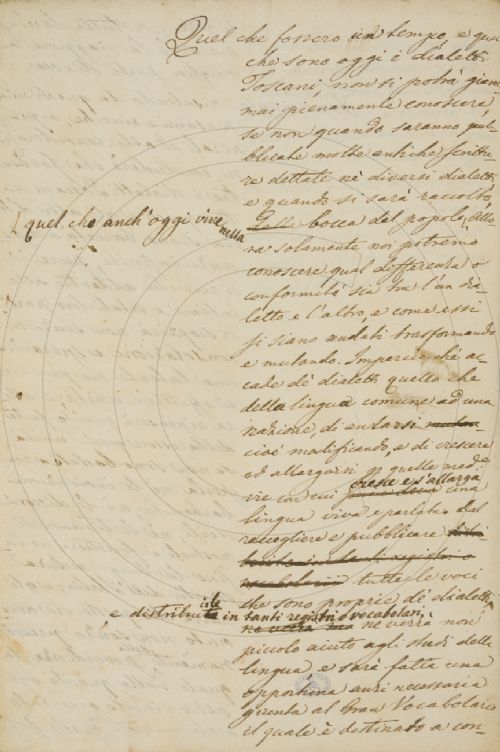 Quel che fossero un tempo, e quel
che sono oggi i dialetti
Toscani, non si potrà giam
mai pienamente conoscere,
se non quando saranno pub
blicate molte antiche scrittu
re dettate ne' diversi dialetti
e quando si sarà raccolto,
quel che anch'oggi vive nella
bocca del popolo. Allo
ra solamente noi potremo
conoscere qual differenza o
conformità sia tra l'un dia
letto e l'altro, e come essi
si siano andati trasformando
e mutando. Imperciocchè ac
cade de' dialetti quello che
della lingua comune ad una
nazione, di andarsi
cioè modificando, e di crescere
ed allargarsi quelle med.e
vie in cui cresce e s'allarga una
lingua viva e parlata. Dal
raccogliere e pubblicare
tutte le voci
che sono proprie de' dialetti
e distribuirle in tanti registri o vocabolari,
ne verrà non
piccolo aiuto agli studi della
lingua e sarà fatta una
opportuna anzi necessaria
giunta al Gran Vocabolario
il quale è destinato a con-